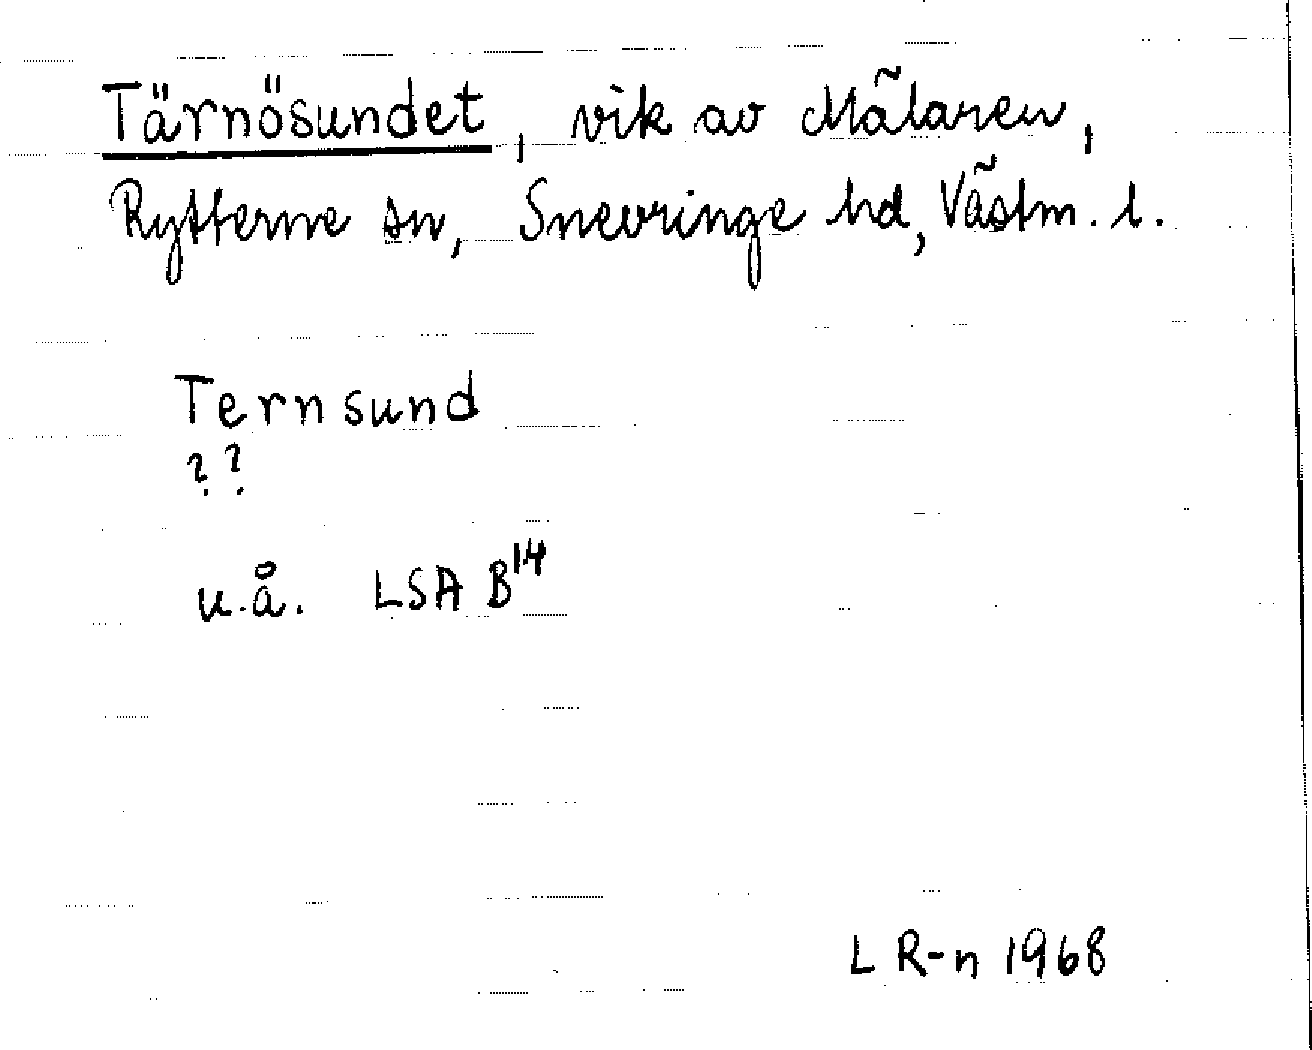 Tärnösundet, vik av Mälaren,
Rytterne sn, Snevringe hd, Västm. l.
Ternsund
??
u.å. LSA B¹⁴
L R-n 1968